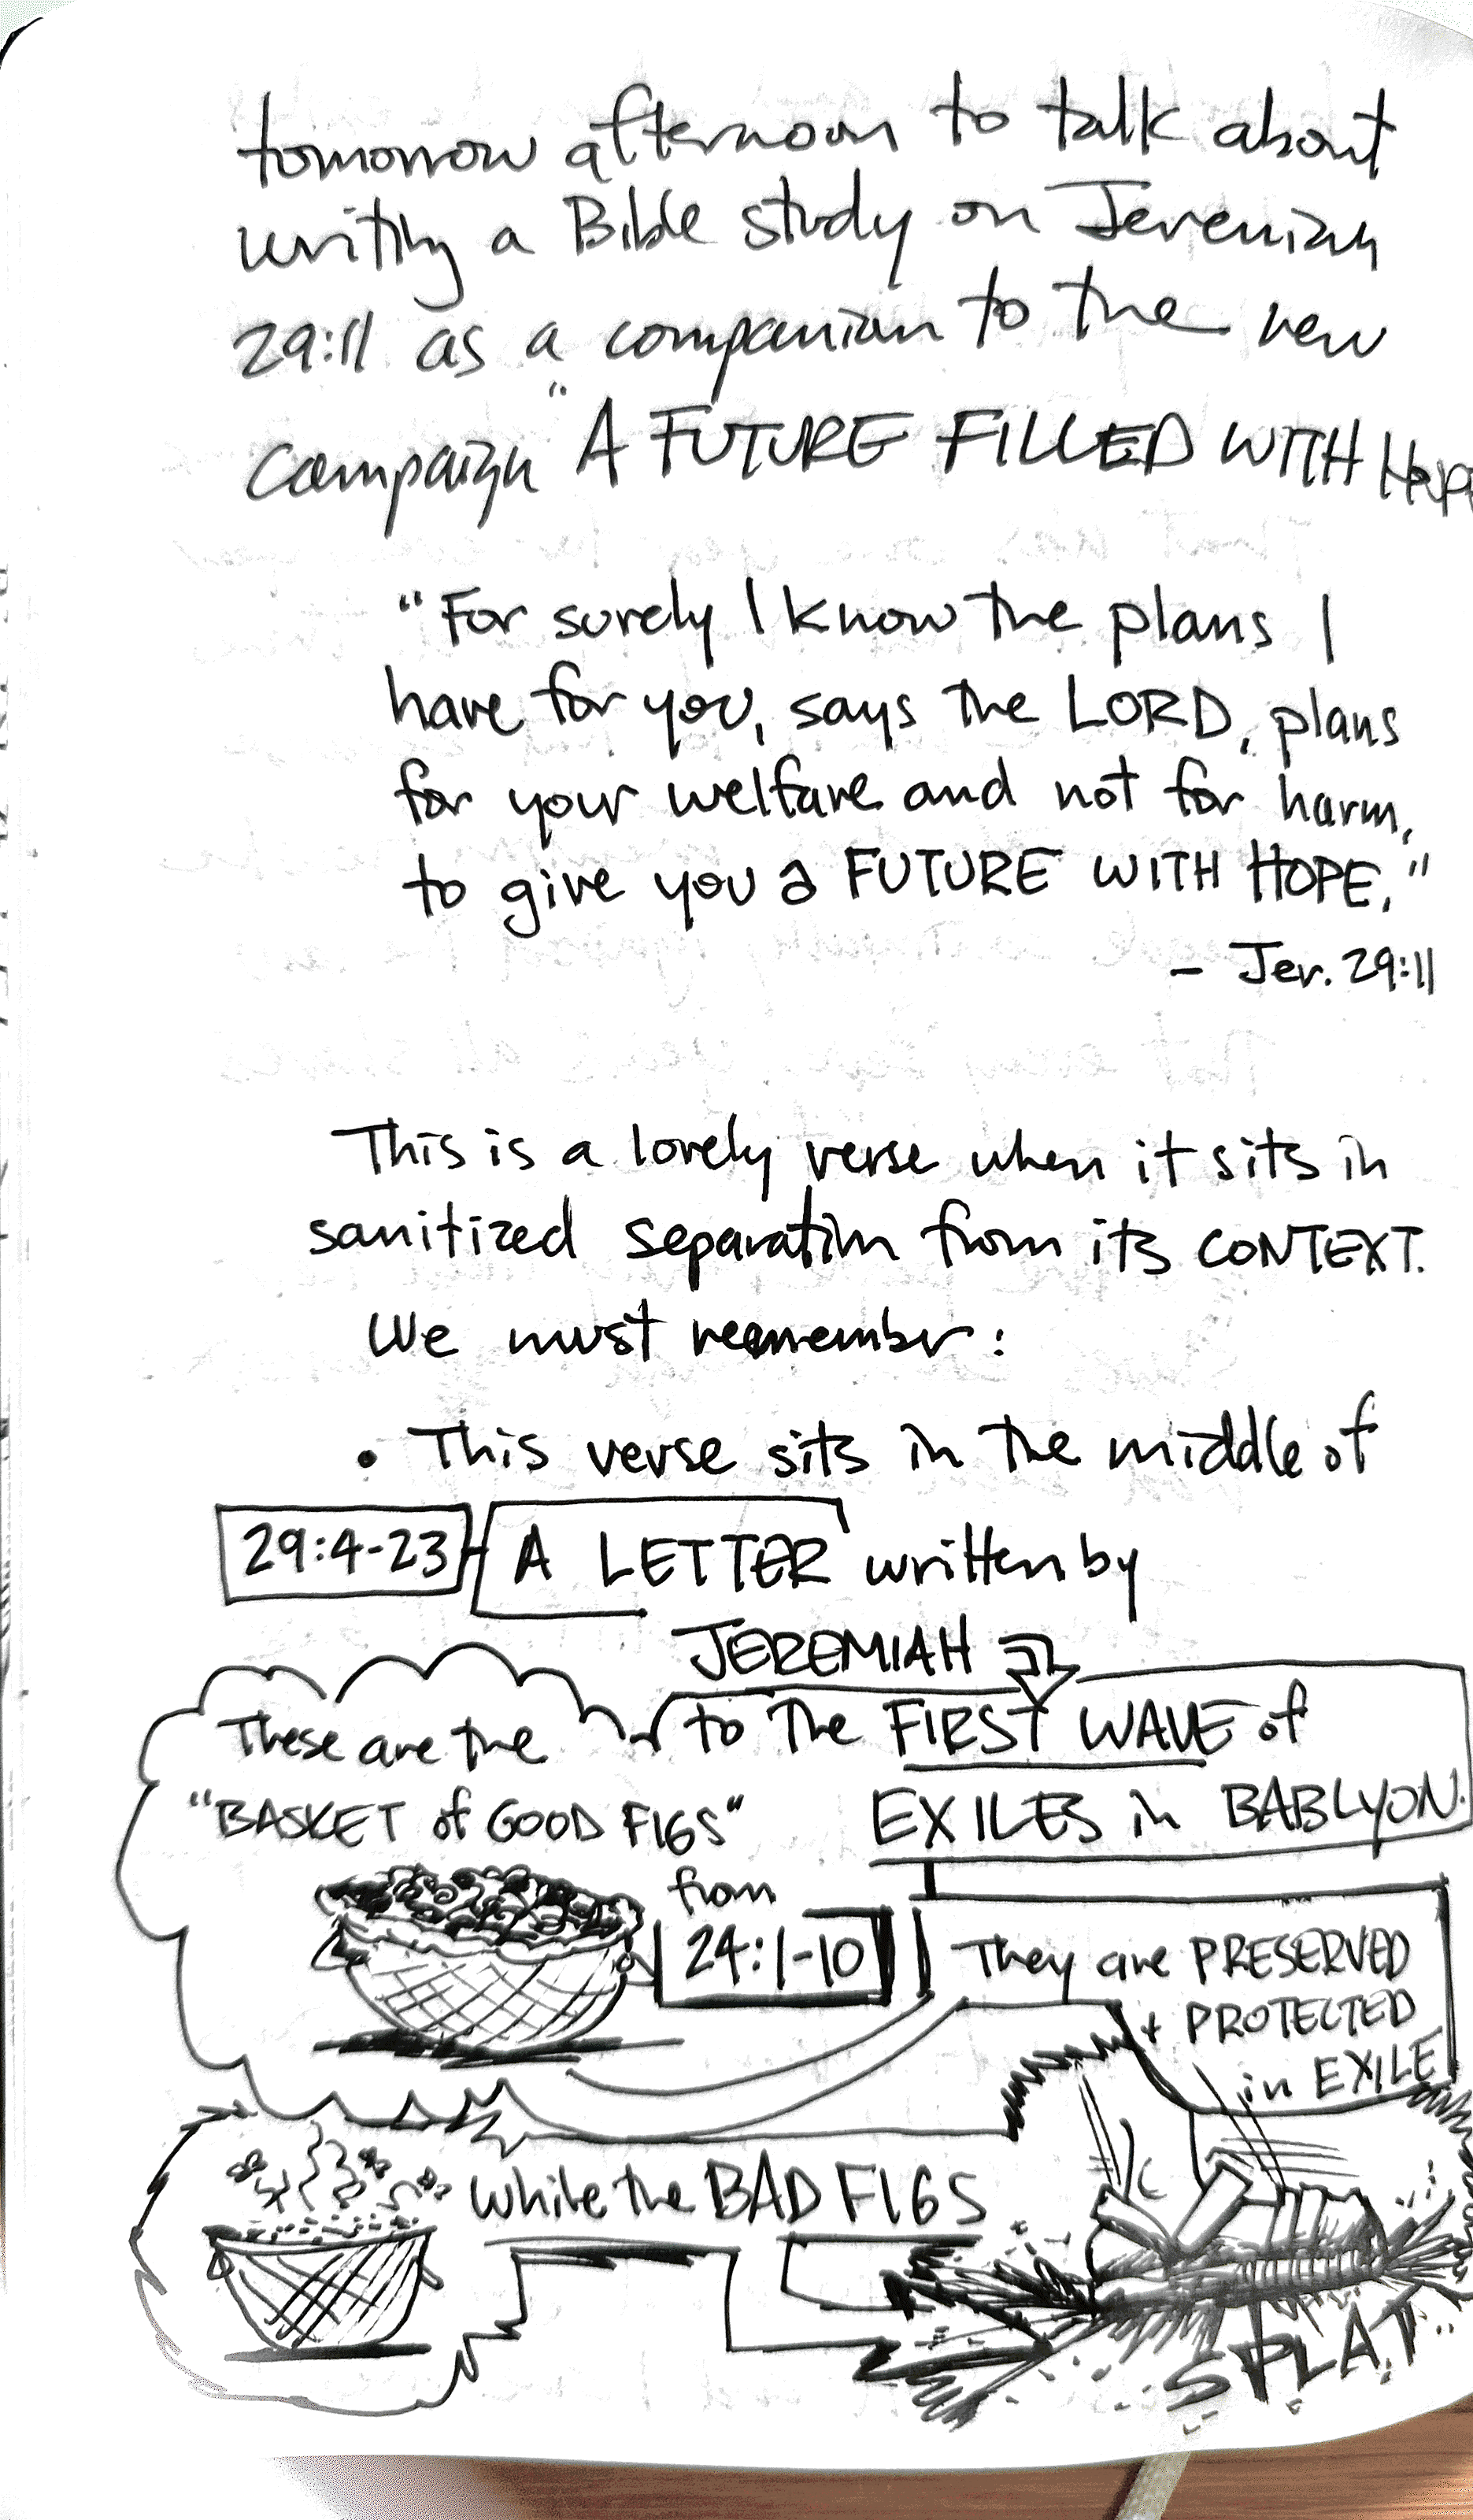 tomorrow afternoon to talk about
writing a Bible study on Jeremiah
29:11 as a companion to the new
campaign "A FUTURE FILLED WITH HOPE
"For surely I know the plans I
have for you, says the LORD, plans
for your welfare and not for harm,
to give you a FUTURE WITH HOPE."
– Jer. 29:11
This is a lovely verse when it sits in
sanitized separation from its CONTEXT.
We must remember:
• This verse sits in the middle of
29:4-23 A LETTER written by
JEREMIAH
to the FIRST WAVE of
EXILES in BABLYON.
These are the
"BASKET of GOOD FIGS"
from
24:1-10
They are PRESERVED
+ PROTECTED
in EXILE
while the BAD FIGS
SPLAT